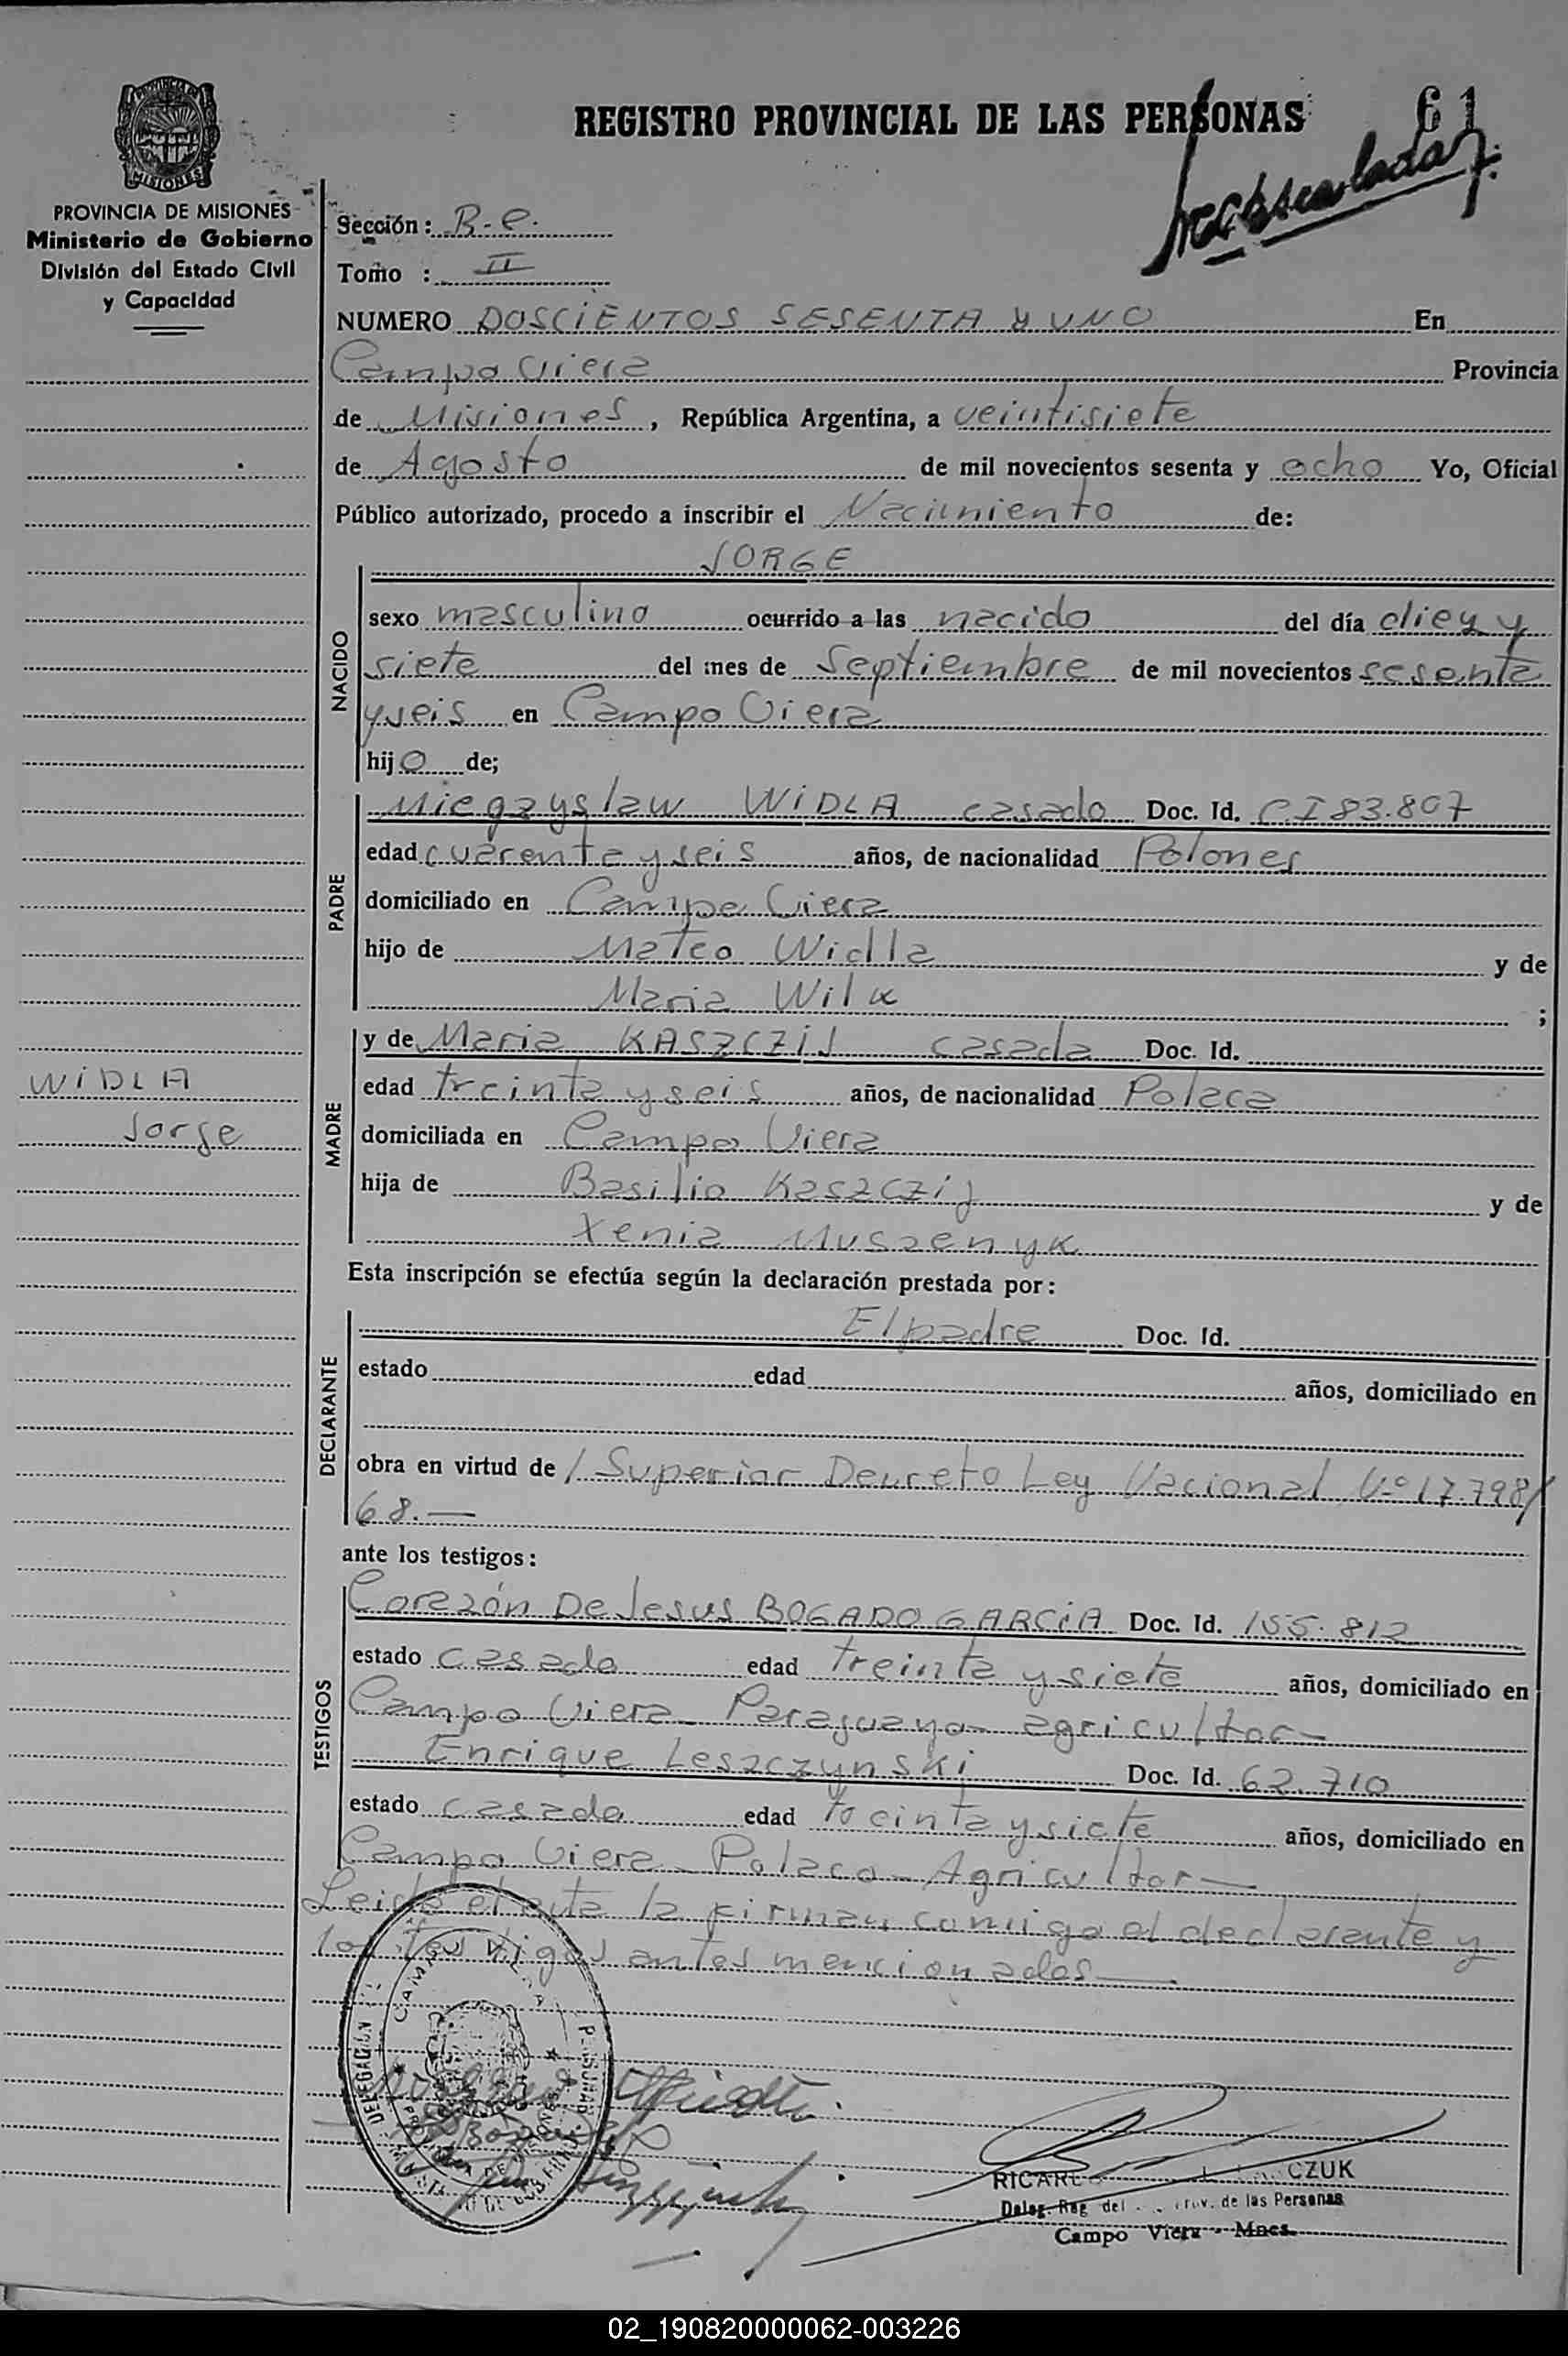 REGISTRO PROVINCIAL DE LAS PERSONAS 61
MISIONES
PROVINCIA DE MISIONES
Ministerio de Gobierno
División del Estado Civil
y Capacidad
Sección: B-e.
Tomo : II
NUMERO DOSCIENTOS SESENTA y UNO En
Campo Viera Provincia
de Misiones, República Argentina, a veintisiete
de Agosto de mil novecientos sesenta y ocho Yo, Oficial
Público autorizado, procedo a inscribir el Nacimiento de:
JORGE
NACIDO
sexo masculino ocurrido a las nacido del día diez y
siete del mes de Septiembre de mil novecientos sesenta
y seis en Campo Viera
hijo de;
PADRE
Miegzyslaw WiDLA casado Doc. Id. C.I 83.807
edad cuarenta y seis años, de nacionalidad Polones
domiciliado en Campo Viera
hijo de Mateo Widla y de
Maria Wilk ;
MADRE
y de Maria KASZCZiJ casada Doc. Id.
edad treinta y seis años, de nacionalidad Polaca
domiciliada en Campo Viera
hija de Basilio Kaszczij y de
Xenia Muszenyk
WiDLA
Jorge
Esta inscripción se efectúa según la declaración prestada por:
DECLARANTE
El padre Doc. Id.
estado edad años, domiciliado en
obra en virtud de / Superior Decreto Ley Nacional Nº 17.798/
68.—
ante los testigos:
TESTIGOS
Corazón De Jesus BOGADO GARCiA Doc. Id. 155.812
estado casado edad treinta y siete años, domiciliado en
Campo Viera - Paraguayo - agricultor -
Enrique Leszczynski Doc. Id. 62.710
estado casado edad treinta y siete años, domiciliado en
Campo Viera - Polaco - Agricultor —
Leida el acta la firman comigo el declarante y
los testigos antes mencionados —.
DELEGACION
RICARDO CZUK
Deleg. Reg. del Prov. de las Personas
Campo Viera - Mnes.
02_190820000062-003226